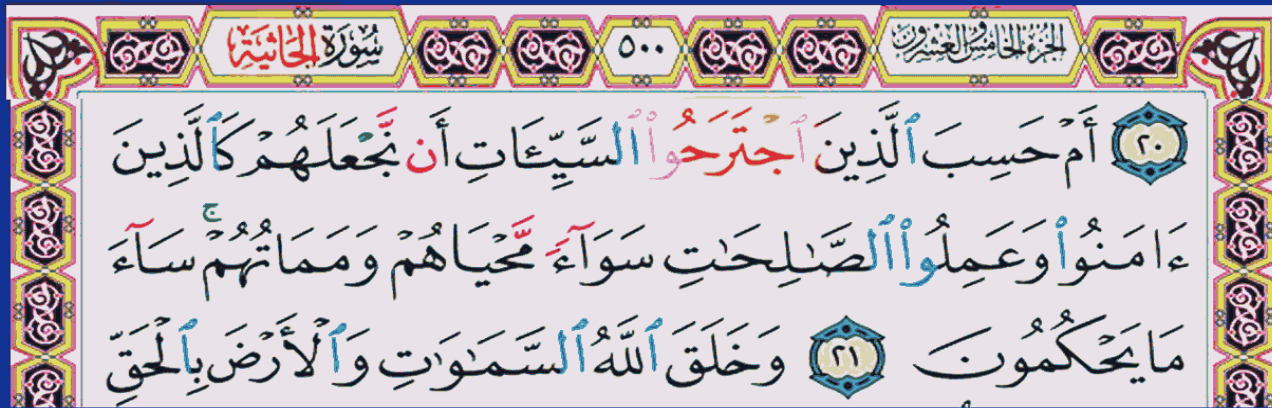 الجزء الخامس والعشرون ٥٠٠ سُورَةُ الجَاثِيَةِ
٢٠ أَمْ حَسِبَ ٱلَّذِينَ ٱجْتَرَحُوا۟ ٱلسَّيِّـَٔاتِ أَن نَّجْعَلَهُمْ كَٱلَّذِينَ
ءَامَنُوا۟ وَعَمِلُوا۟ ٱلصَّـٰلِحَـٰتِ سَوَآءً مَّحْيَاهُمْ وَمَمَاتُهُمْ ۚ سَآءَ
مَا يَحْكُمُونَ ٢١ وَخَلَقَ ٱللَّهُ ٱلسَّمَـٰوَٰتِ وَٱلْأَرْضَ بِٱلْحَقِّ